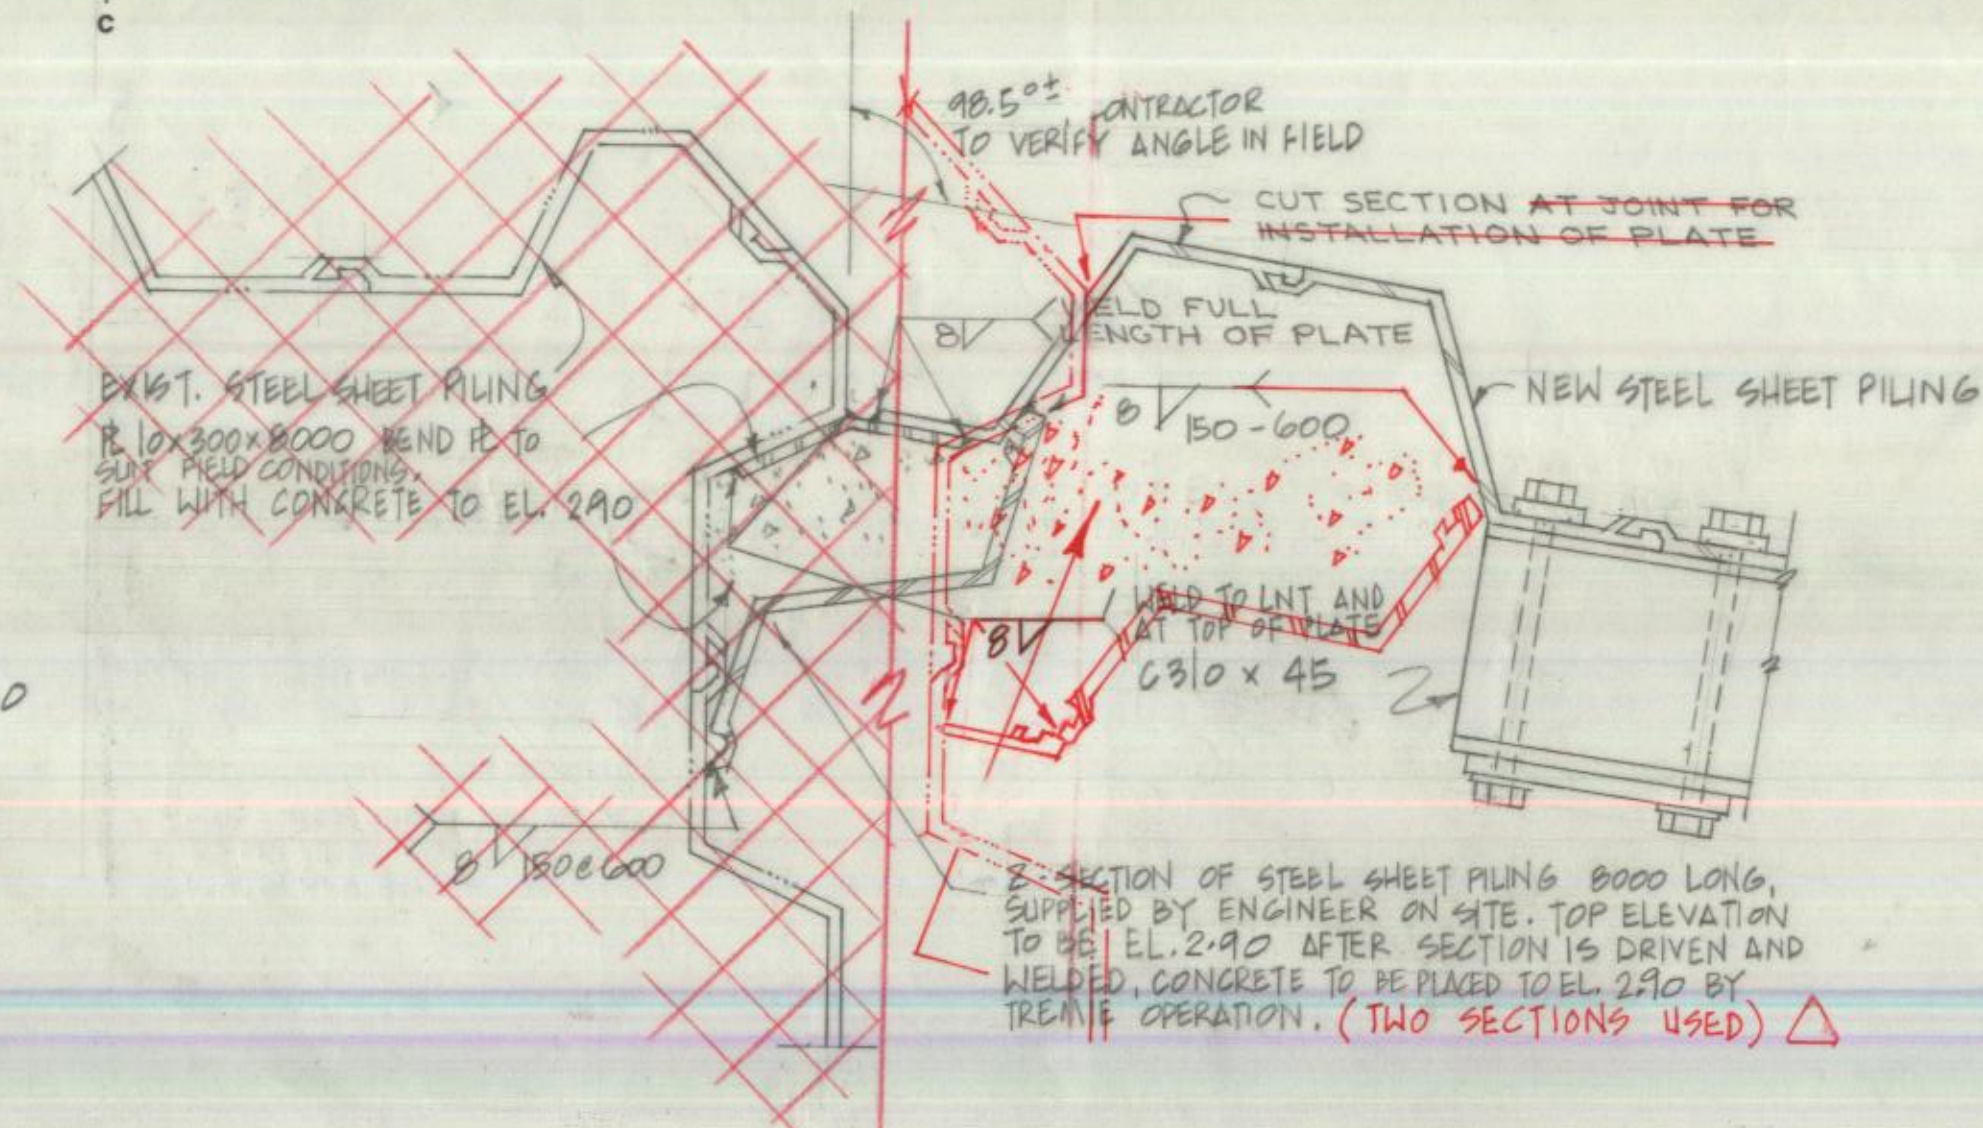 C
98.5°± CONTRACTOR
TO VERIFY ANGLE IN FIELD
CUT SECTION AT JOINT FOR
INSTALLATION OF PLATE
8 WELD FULL
LENGTH OF PLATE
EXIST. STEEL SHEET PILING
NEW STEEL SHEET PILING
8 150-600
PL 10x300x8000 BEND PL TO
SUIT FIELD CONDITIONS.
FILL WITH CONCRETE TO EL. 2.90
8 WELD TO LNT AND
AT TOP OF PLATE
C310 x 45
0
8 150@600
Z-SECTION OF STEEL SHEET PILING 8000 LONG,
SUPPLIED BY ENGINEER ON SITE. TOP ELEVATION
TO BE EL. 2.90 AFTER SECTION IS DRIVEN AND
WELDED, CONCRETE TO BE PLACED TO EL. 2.90 BY
TREMIE OPERATION. (TWO SECTIONS USED)